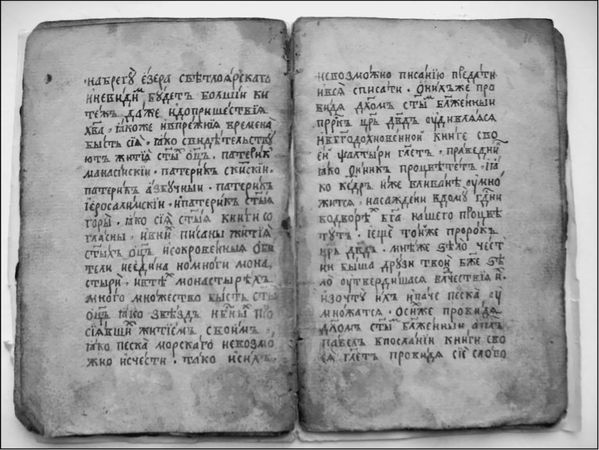 набрегꙋ̀ езера свѣтлоярскагѡ
иневиди҄ будетъ болшіи ки
тежъ, даже идопришествїѧ
хв҃а. ꙗкоже ивпрежніѧ времена
бысть сїѧ. ꙗко свидѣтелству
ютъ житіѧ сты҃ ѻц҃ъ. патерик
манасїискїи. патерик скїскїи.
патерик азбучныи. патерик
іеросалимскїи. ипатерик стыѧ
горы. ꙗко сіѧ ст҃ыѧ книги со
гласны. ивни писаны житїѧ
ст҃ыхъ ѻц҃ъ исокровенныѧ оби
тели неедина номноги мона
стыри. ивтѣ монастырѣхъ
много множество бысть ст҃ы
ѻц҃ъ ꙗко звѣздъ нб҃ны про
сіѧвши житїемъ своимъ.
ꙗко песка морскаго невозмо
жно исчести. тако исихъ
невозможно писанїю предати
ивсѧ списати. Онихъже про
видѧ дх҃омъ ст҃ы бл҃женныи
прр҃къ цр҃ь дв҃дъ оудивлѧѧсѧ
ивбг҃одохновенной книге сво
ей ѱалтыри гл҃етъ. праведни
ꙗко финикъ процвѣтетъ. ꙗ
ко кедръ иже вливанѣ оумно
житсѧ. насаждени вдому гд҃ни
водворѣ бг҃а нашего процвѣ
тутъ. иеще тойже пророкъ
цр҃ь дв҃дъ. мнѣже ѕѣло чест
ни быша друзи твои бж҃е ѕѣ
ло оутвердишасѧ влчествїѧ и.
изочту ихъ ипаче песка оу
множатсѧ. Осиже провидѧ
дх҃омъ ст҃ы бл҃женныи ап҃лъ
павелъ впосланїи книги сво
еѧ гл҃етъ провидѧ сїе слово